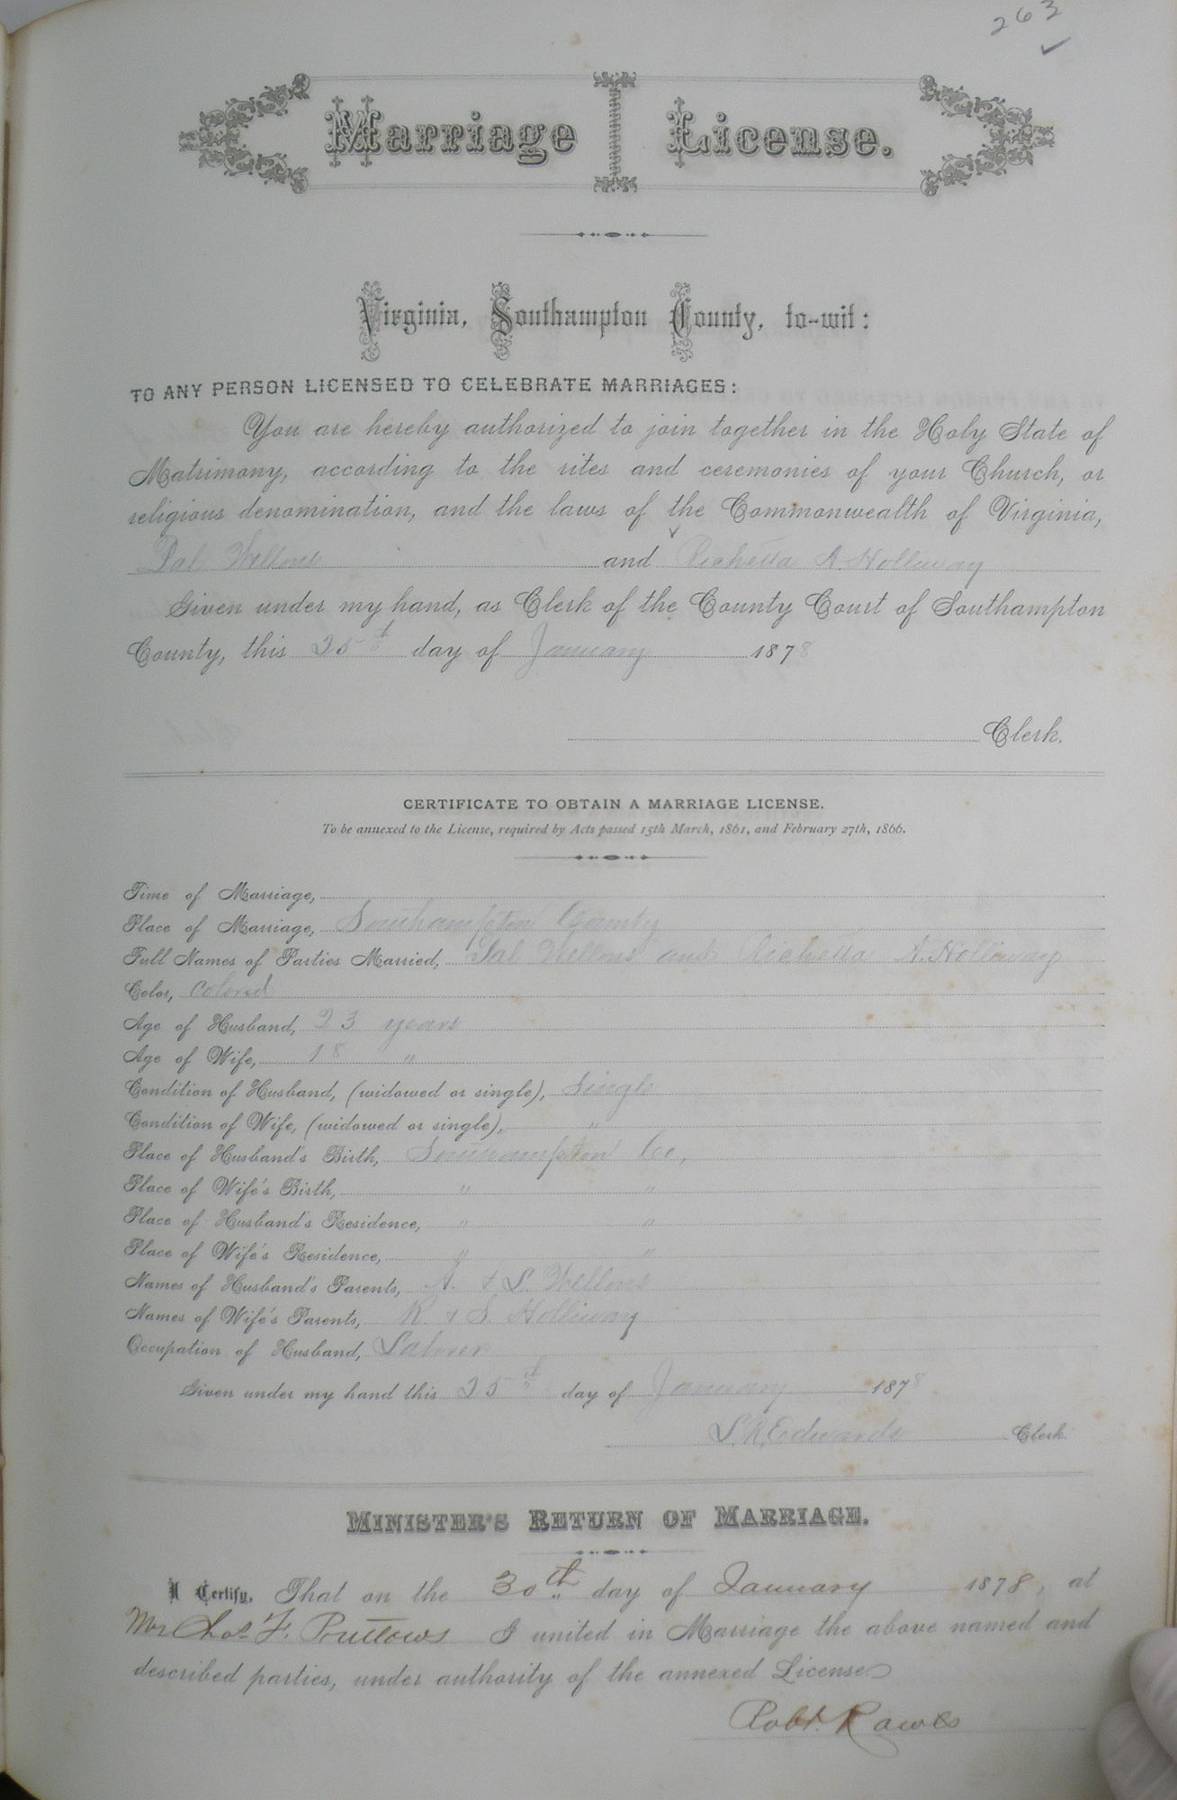 263
Marriage License.
Virginia, Southampton County, to-wit:
TO ANY PERSON LICENSED TO CELEBRATE MARRIAGES:
You are hereby authorized to join together in the Holy State of
Matrimony, according to the rites and ceremonies of your Church, or
religious denomination, and the laws of the Commonwealth of Virginia,
and A. Holloway
Given under my hand, as Clerk of the County Court of Southampton
County, this 25th day of January 1878
Clerk.
CERTIFICATE TO OBTAIN A MARRIAGE LICENSE.
To be annexed to the License, required by Acts passed 15th March, 1861, and February 27th, 1866.
Time of Marriage,
Place of Marriage, Southampton County
Full Names of Parties Married, and A. Holloway
Color, Colored
Age of Husband, 23 years
Age of Wife, 18 "
Condition of Husband, (widowed or single), Single
Condition of Wife, (widowed or single), "
Place of Husband's Birth, Southampton Co,
Place of Wife's Birth, " "
Place of Husband's Residence, " "
Place of Wife's Residence, " "
Names of Husband's Parents, A. & S. Wellons
Names of Wife's Parents, R. & S. Holliway
Occupation of Husband, Laborer
Given under my hand this 25th day of January 1878
L.R. Edwards Clerk.
MINISTER'S RETURN OF MARRIAGE.
I Certify, That on the 30th day of January 1878, at
Mr F. I united in Marriage the above named and
described parties, under authority of the annexed License
Robt. Rawls